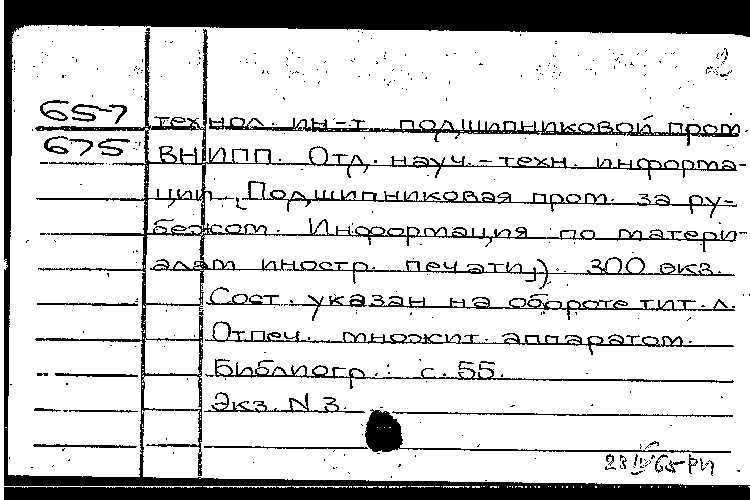 2
657 технол. ин-т подшипниковой пром.
675 ВНИПП. Отд. науч.-техн. информа-
ции. Подшипниковая пром. за ру-
бежом. Информация по матери-
алам иностр. печати). 300 экз.
Сост. указан на обороте тит. л.
Отпеч. множит. аппаратом.
Библиогр.: с. 55.
Экз. N 3.
23 IV 65